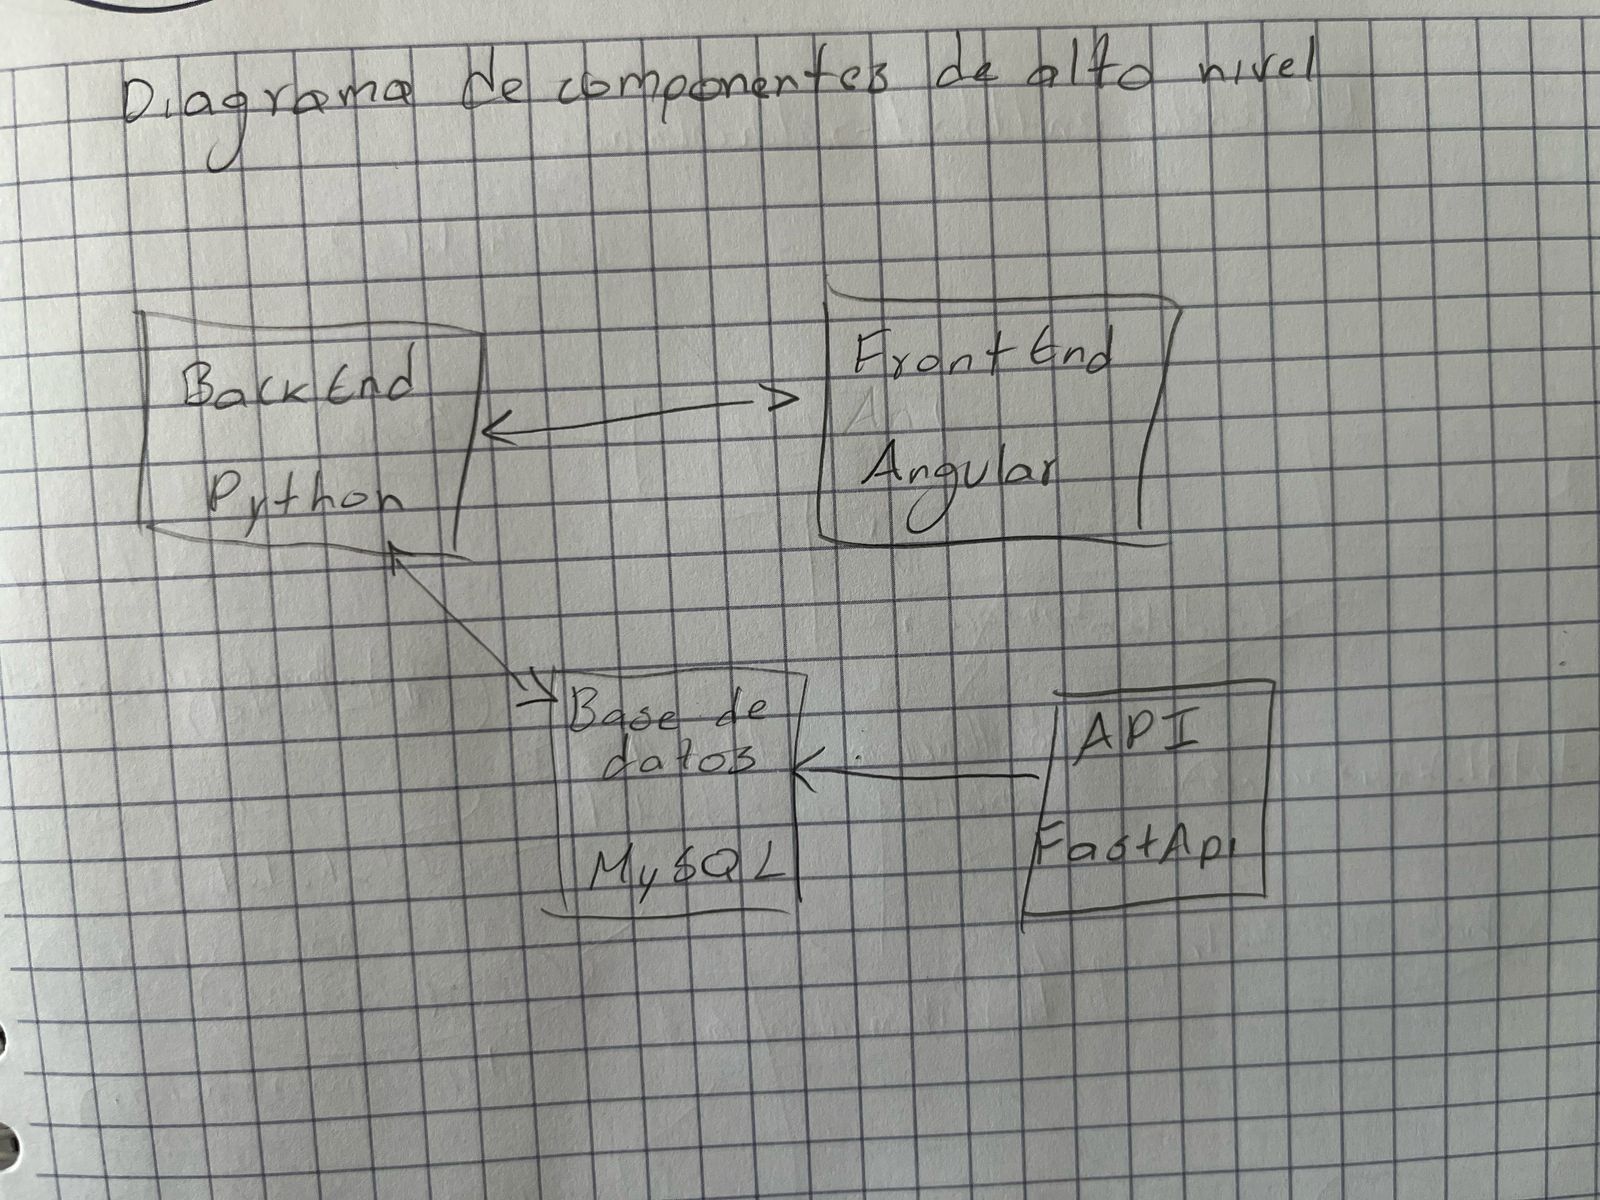 Diagrama de componentes de alto nivel
BackEnd
Python
FrontEnd
An
Angular
Base de
datos
MySQL
API
FastApi